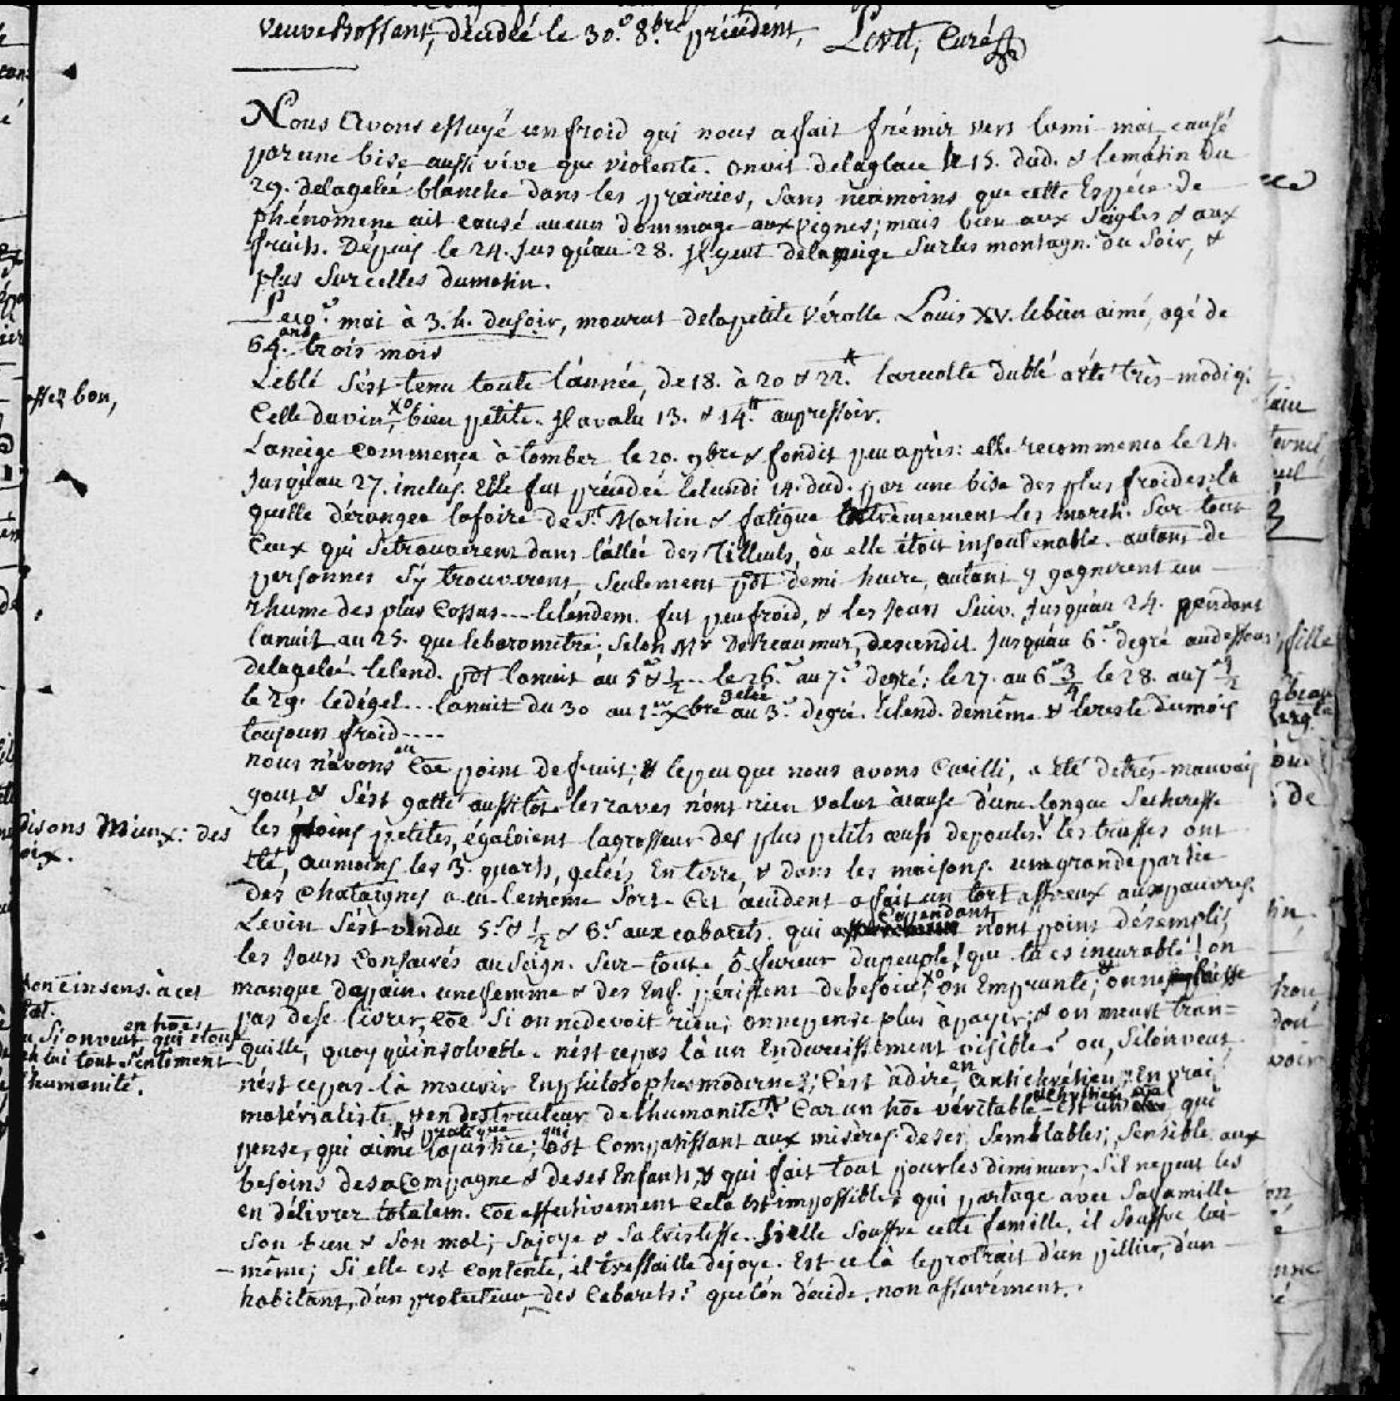 veuve Bossant, décedée le 30.e 8.bre précédent, Curé
Nous Avons essuyé un froid qui nous a fait frémir vers lami-mai causé
par une bise aussi vive que violente. on vit delaglace le 15. dud. & lematin du
29. delagelée blanche dans les prairies, sans néamoins que cette Espéce de
phénomene ait causé aucun dommage aux vignes; mais bien aux seigles & aux
fruits. Depuis le 24. Jusqu'au 28. Il y eut delaneige sur les montagn. du Soir, &
plus sur celles du matin.
Le 10.e mai à 3. h. dusoir, mourut delapetite vérolle Louis XV. lebien aimé, agé de
64. ans trois mois
Leblé s'est tenu toute l'année, de 18. à 20 & 22.# larécolte dublé a été très-modiq.
assez bon,
Celle duvin, bien petite. Il avalu 13. & 14.# aupressoir.
Laneige commença à tomber le 20. 9bre & fondit peu après: elle recommença le 24.
Jusqu'au 27. inclus. Elle fut précédée lelundi 14. dud. par une bise des plus froides: la
quelle dérangea lafoire de S.t Martin & fatigua Extrêmement les march. Sur tout
Ceux qui setrouverent dans l'allée des Tilleuls, où elle étoit insoutenable. autant de
personnes s'y trouverent, seulement pdt demi heure, autant y gagnerent un
rhume des plus Cossus --- lelendem. fut peu froid, & les Jours suiv. Jusqu'au 24. pendant
lanuit au 25. que lebarométre, selon Mr DeReaumur, descendit Jusqu'au 6.e degré audessous
delagelée. lelend. pdt lanuit au 5e & 1/2 -- le 26. au 7.e degré: le 27. au 6e 3/4 le 28. au 7e 1/2
le 29. ledégel... lanuit du 30 au 1.er Xbre gelée au 3.e degré. lelend. demême & lereste dumois
toujours froid ----
nous n'avons eu Cõe point defruit; & lepeu que nous avons Cueilli, a été detrés-mauvais
gout, & s'est gatté aussitôt. les raves n'ont rien valut àcause d'une longue secheresse
disons Mieux: des
oix.
les petites, égaloient lagrosseur des plus petits œufs depoules. les truffes ont
été, aumoins les 3. quarts, gelées En terre, & dans les maisons. une grande partie
des chataignes a eu lemême sort. Cet accident a fait un tort affreux aux pauvres.
Levin s'est vendu 5s. & 1/2 & 6s. aux cabarets. qui Cependant n'ont point désemplis
les Jours Consacrés au Seign. sur-tout. ô fureur dupeuple! que tu es incurable! on
manque depain. unefemme & des Enf. périssent debesoin; on Emprunte; on ne
pas dese livrer, Cõe si on nedevoit rien; on nepense plus àpayer; & on meurt tran=
quille, quoy qu'insolvable. n'est cepas là un Endurcissement visible? ou, si l'on veut
n'est cepas là mourir Enphilosophesmodernes; c'est àdire, en Antichrétien; En vrai
matérialiste, & en destructeur del'humanité? Car un hõe véritable-est un qui
pense, qui aime & pratique lajustice; qui est Compatissant aux misères deses semblables; sensible aux
besoins desaCompagne & deses Enfants; & qui fait tout pour les diminuer, s'il nepeut les
en délivrer totalem. Cõe effectivement cela est impossible; qui partage avec safamille
son bien & son mal; sajoye & satristesse. si elle souffre cette famille, il souffre lui-
même; si elle est contente, il tressaille dejoye. Est ce là leprotrait d'un pillier, d'un
habitant, d'un protecteur des Cabarets? quel'on décide. non assurément.